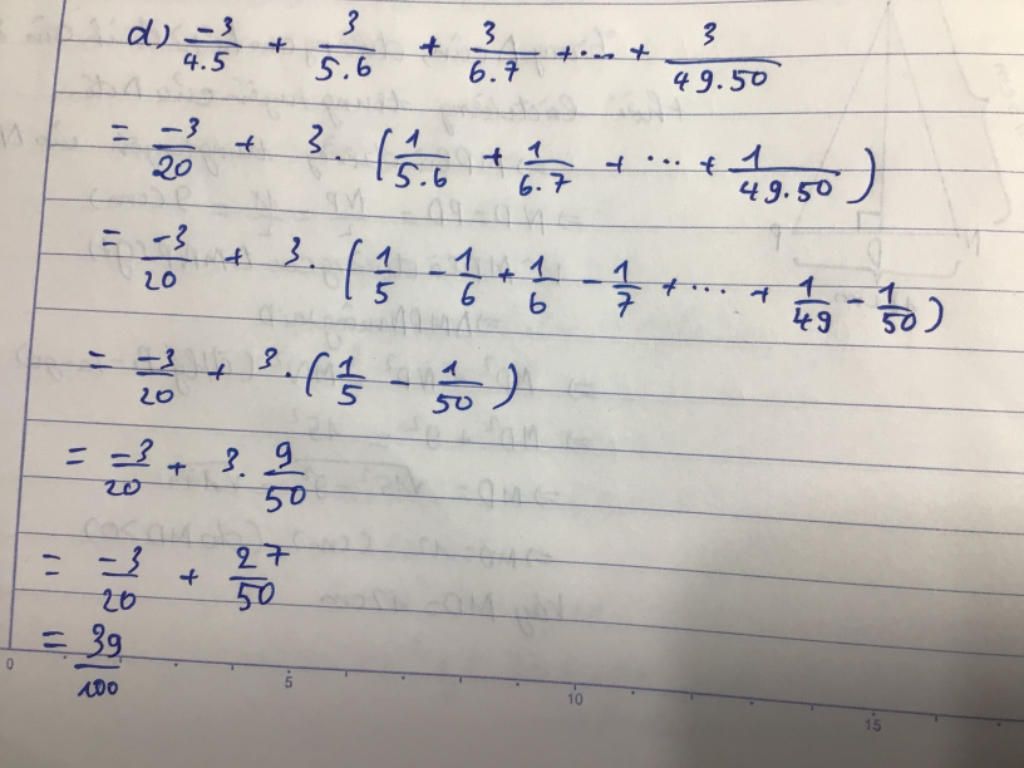 d) -3/4.5 + 3/5.6 + 3/6.7 + ... + 3/49.50
= -3/20 + 3. (1/5.6 + 1/6.7 + ... + 1/49.50)
= -3/20 + 3. (1/5 - 1/6 + 1/6 - 1/7 + ... + 1/49 - 1/50)
= -3/20 + 3. (1/5 - 1/50)
= -3/20 + 3. 9/50
= -3/20 + 27/50
= 39/100
0 5 10 15